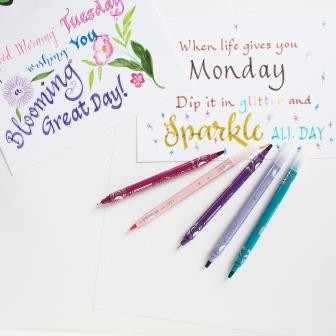 Good Morning Tuesday
wishing You
a
Blooming
Great Day!
When life gives you
Monday
Dip it in glitter and
Sparkle ALL DAY